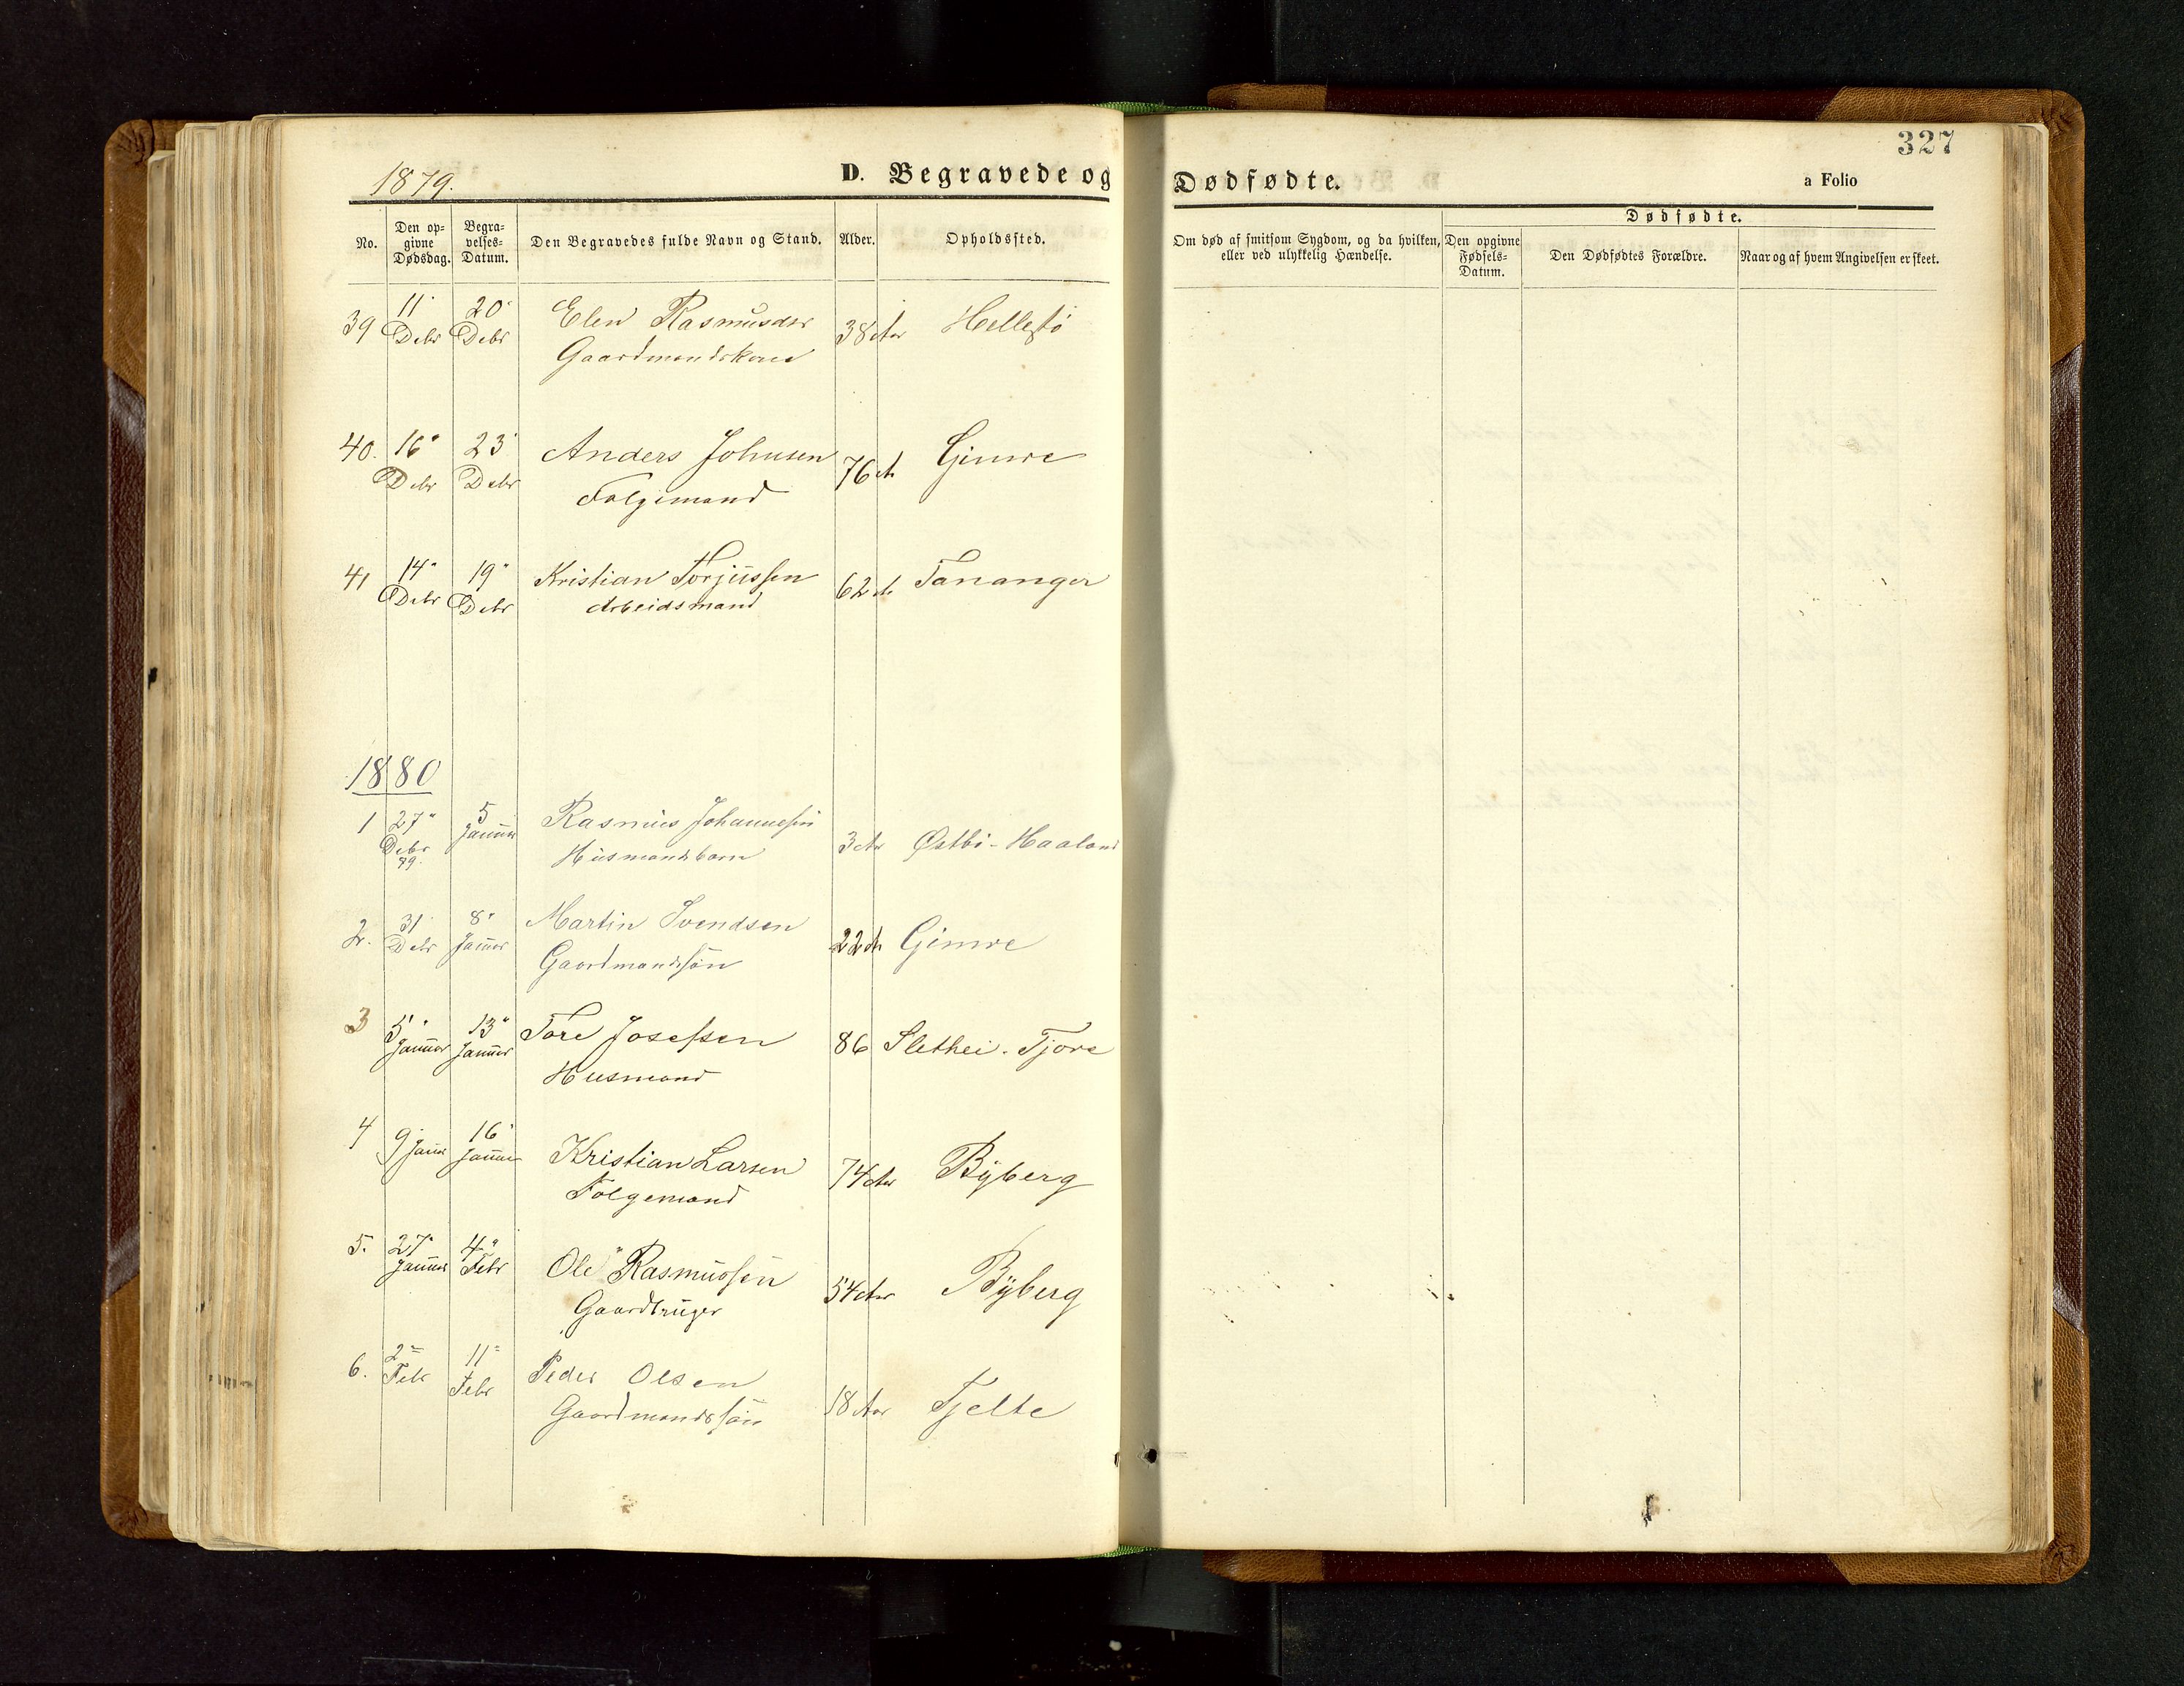 327
1879.
D. Begravede og Dødfødte.
a Folio
No.
Den op-
givne
Dødsdag.
Begra-
velses-
Datum.
Den Begravedes fulde Navn og Stand.
Alder.
Opholdssted.
Om død af smitsom Sygdom, og da hvilken,
eller ved ulykkelig Hændelse.
Dødfødte.
Den opgivne
Fødsels-
Datum.
Den Dødfødtes Forældre.
Naar og af hvem Angivelsen er skeet.
39 11 Debr 20 Debr Elen Rasmusdr 38 Aar Hellestø
Gaardmandskone
40. 16 Debr 23 Debr Anders Johnsen 76 A Gimre
Folgemand
41 14 Debr 19 Debr Kristian Torjussen 62 A Tananger
Arbeidsmand
1880
1 27 Debr 79. 5 Januar Rasmus Johannessen 3 Aar Østbø-Haaland
Husmandsbarn
2. 31 Debr 8 Januar Martin Svendsen 22 A Gimre
Gaardmandssøn
3 5 Januar 13 Januar Tore Josefsen 86 Slethei. Tjore
Husmand
4 9 Januar 16 Januar Kristian Larsen 74 Aar Byberg
Folgemand
5. 27 Januar 4 Febr Ole Rasmussen 54 Aar Byberg
Gaardbruger
6. 2 Febr 11 Febr Peder Olsen 18 Aar Tjelte
Gaardmandssøn